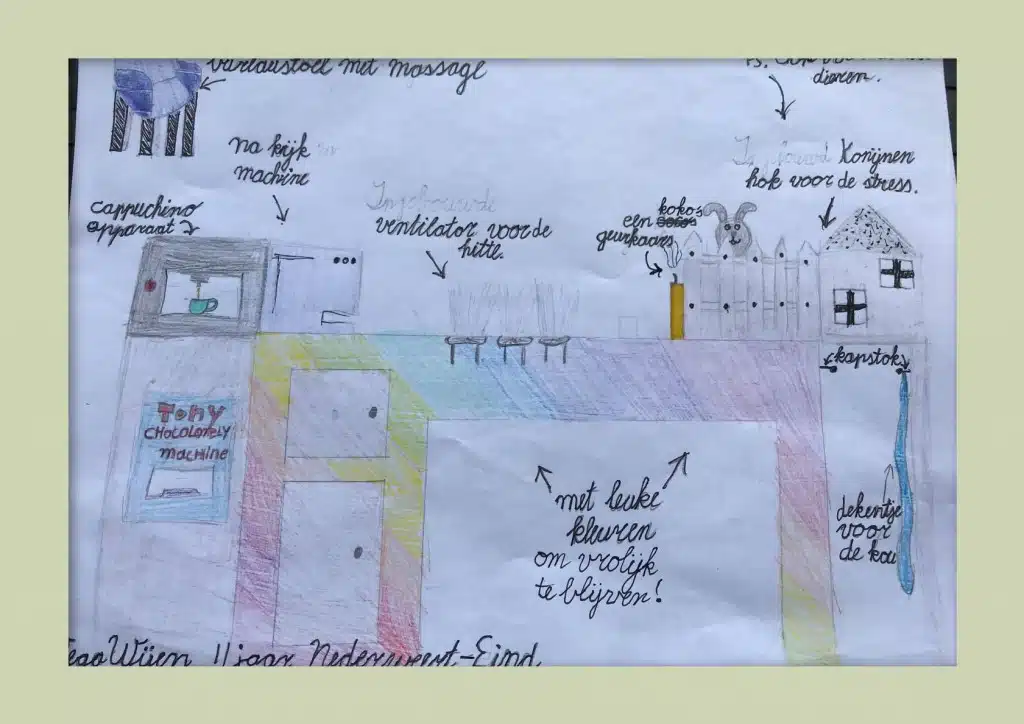 bureaustoel met massage
dieren.
na kijk
machine
Ingebouwde
ventilator voor de
hitte.
Konijnen
hok voor de stress.
cappuchino
apparaat
een kokos
geurkaars
kapstok
Tony
CHOCOLONELY
machine
met leuke
kleuren
om vrolijk
te blijven!
dekentje
voor
de kou
11 jaar Nederweert-Eind